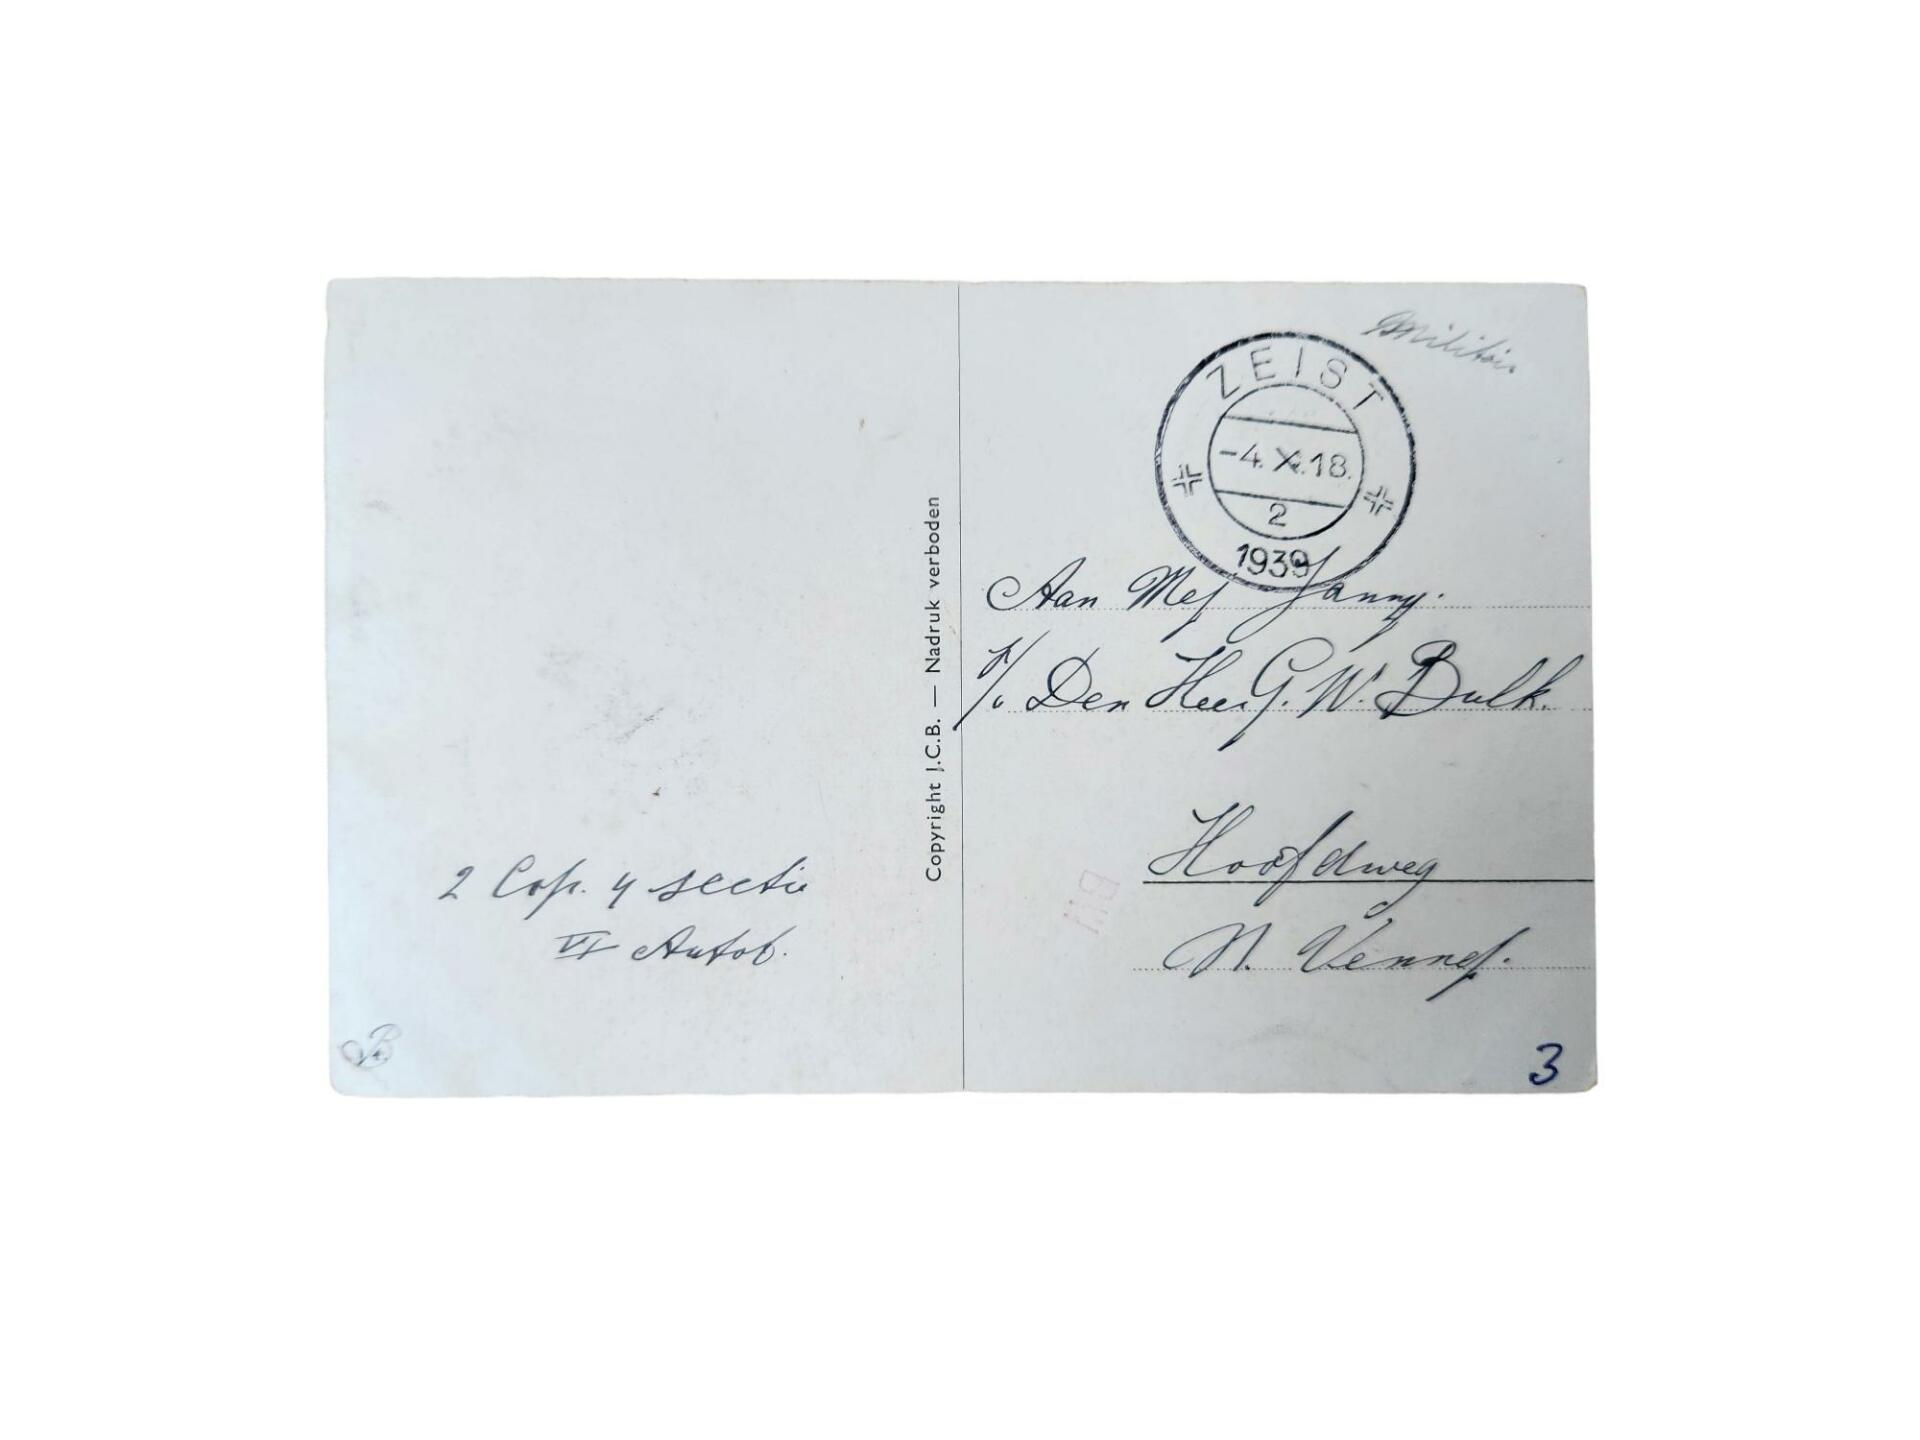 Militair
ZEIST
-4.X.18.
2
1939
Aan Mej Janny.
p/a Den Heer G. W. Bulk.
Hoofdweg
N. Vennep.
2 Cop. 4 sectie
VI Autob.
Copyright J.C.B. — Nadruk verboden
3